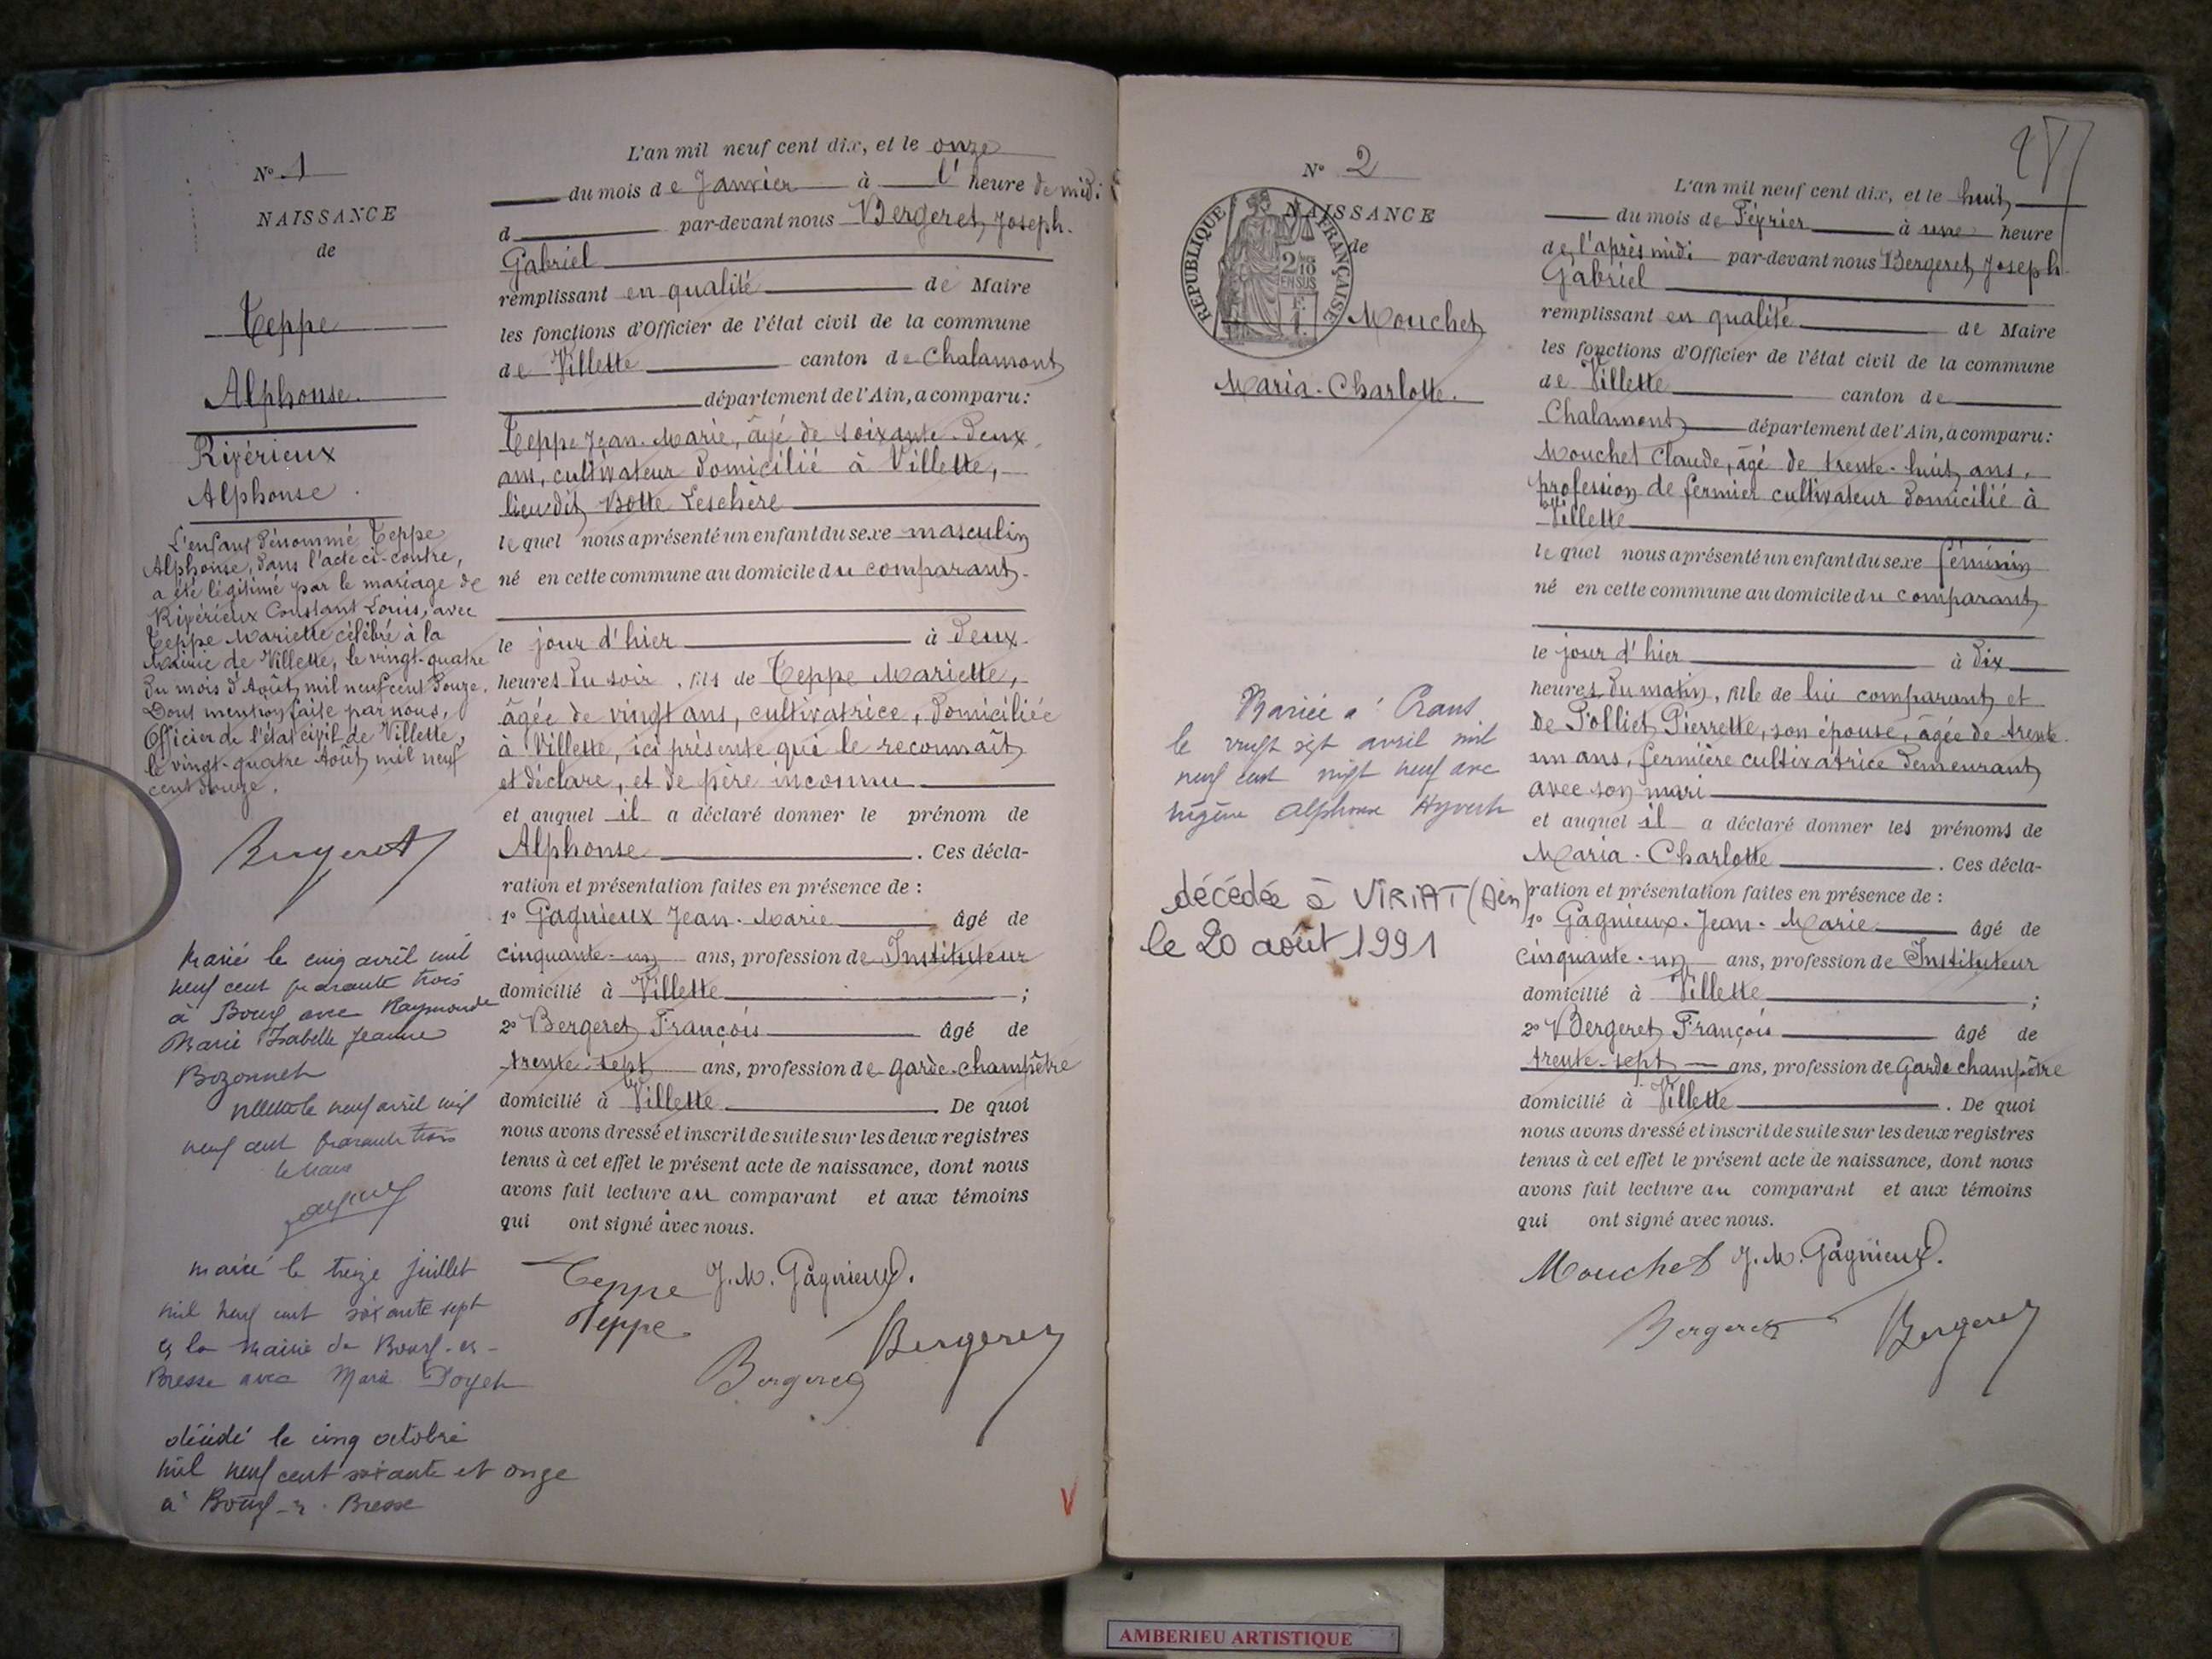 N° 1
NAISSANCE
de
Teppe
Alphonse.
Rivérieux
Alphonse.
L'enfant dénommé Teppe
Alphonse, dans l'acte ci-contre,
a été légitimé par le mariage de
Rivérieux Constant Louis, avec
Teppe Mariette célébré à la
Mairie de Villette, le vingt-quatre
du mois d'Août mil neuf cent douze.
Dont mention faite par nous,
Officier de l'état civil de Villette,
le vingt-quatre Août mil neuf
cent douze.
Bergeret
Marié le cinq avril mil
neuf cent quarante trois
à Bourg avec Raymonde
Marie Isabelle Jeanne
Bozonnet
Villette le neuf avril mil
neuf cent quarante trois
le Maire
marié le treize juillet
mil neuf cent soixante sept
à la mairie de Bourg-en-
Bresse avec Marie Poyet
décédé le cinq octobre
mil neuf cent soixante et onze
à Bourg-en-Bresse
L'an mil neuf cent dix, et le onze
du mois de Janvier à l' heure de midi
d par-devant nous Bergeret, Joseph.
Gabriel
remplissant en qualité de Maire
les fonctions d'Officier de l'état civil de la commune
de Villette canton de Chalamont
département de l'Ain, a comparu:
Teppe Jean-Marie, âgé de soixante-deux
ans, cultivateur domicilié à Villette,
lieu dit Botte Leschère
le quel nous a présenté un enfant du sexe masculin
né en cette commune au domicile du comparant.
le jour d'hier à deux
heures du soir, fils de Teppe Mariette,
âgée de vingt ans, cultivatrice, domiciliée
à Villette, ici présente qui le reconnaît
et déclare, et de père inconnu
et auquel il a déclaré donner le prénom de
Alphonse. Ces décla-
ration et présentation faites en présence de :
1° Gagnieux Jean-Marie âgé de
cinquante-un ans, profession de Instituteur
domicilié à Villette ;
2° Bergeret François âgé de
trente-sept ans, profession de garde-champêtre
domicilié à Villette. De quoi
nous avons dressé et inscrit de suite sur les deux registres
tenus à cet effet le présent acte de naissance, dont nous
avons fait lecture au comparant et aux témoins
qui ont signé avec nous.
Teppe J. M. Gagnieux.
Teppe
Bergeret Bergeret
V
N° 2
NAISSANCE
de
REPUBLIQUE FRANÇAISE
2/10
EN SUS
Mouchet
Maria-Charlotte.
Mariée à Crans
le vingt sept avril mil
neuf cent vingt neuf avec
Alphonse Hyvert
décédée à VIRIAT (Ain)
le 20 août 1991
L'an mil neuf cent dix, et le huit
du mois de Février à une heure
de l'après midi par-devant nous Bergeret, Joseph
Gabriel
remplissant en qualité de Maire
les fonctions d'Officier de l'état civil de la commune
de Villette canton de
Chalamont département de l'Ain, a comparu:
Mouchet Claude, âgé de trente-huit ans,
profession de fermier cultivateur domicilié à
Villette
le quel nous a présenté un enfant du sexe féminin
né en cette commune au domicile du comparant
le jour d'hier à dix
heures du matin, fille de lui comparant et
de Polliet Pierrette, son épouse, âgée de trente
un ans, fermière cultivatrice demeurant
avec son mari
et auquel il a déclaré donner les prénoms de
Maria-Charlotte. Ces décla-
ration et présentation faites en présence de :
1° Gagnieux-Jean-Marie âgé de
cinquante-un ans, profession de Instituteur
domicilié à Villette ;
2° Bergeret François âgé de
trente-sept ans, profession de Garde champêtre
domicilié à Villette. De quoi
nous avons dressé et inscrit de suite sur les deux registres
tenus à cet effet le présent acte de naissance, dont nous
avons fait lecture au comparant et aux témoins
qui ont signé avec nous.
Mouchet J. M. Gagnieux.
Bergeret Bergeret
AMBERIEU ARTISTIQUE